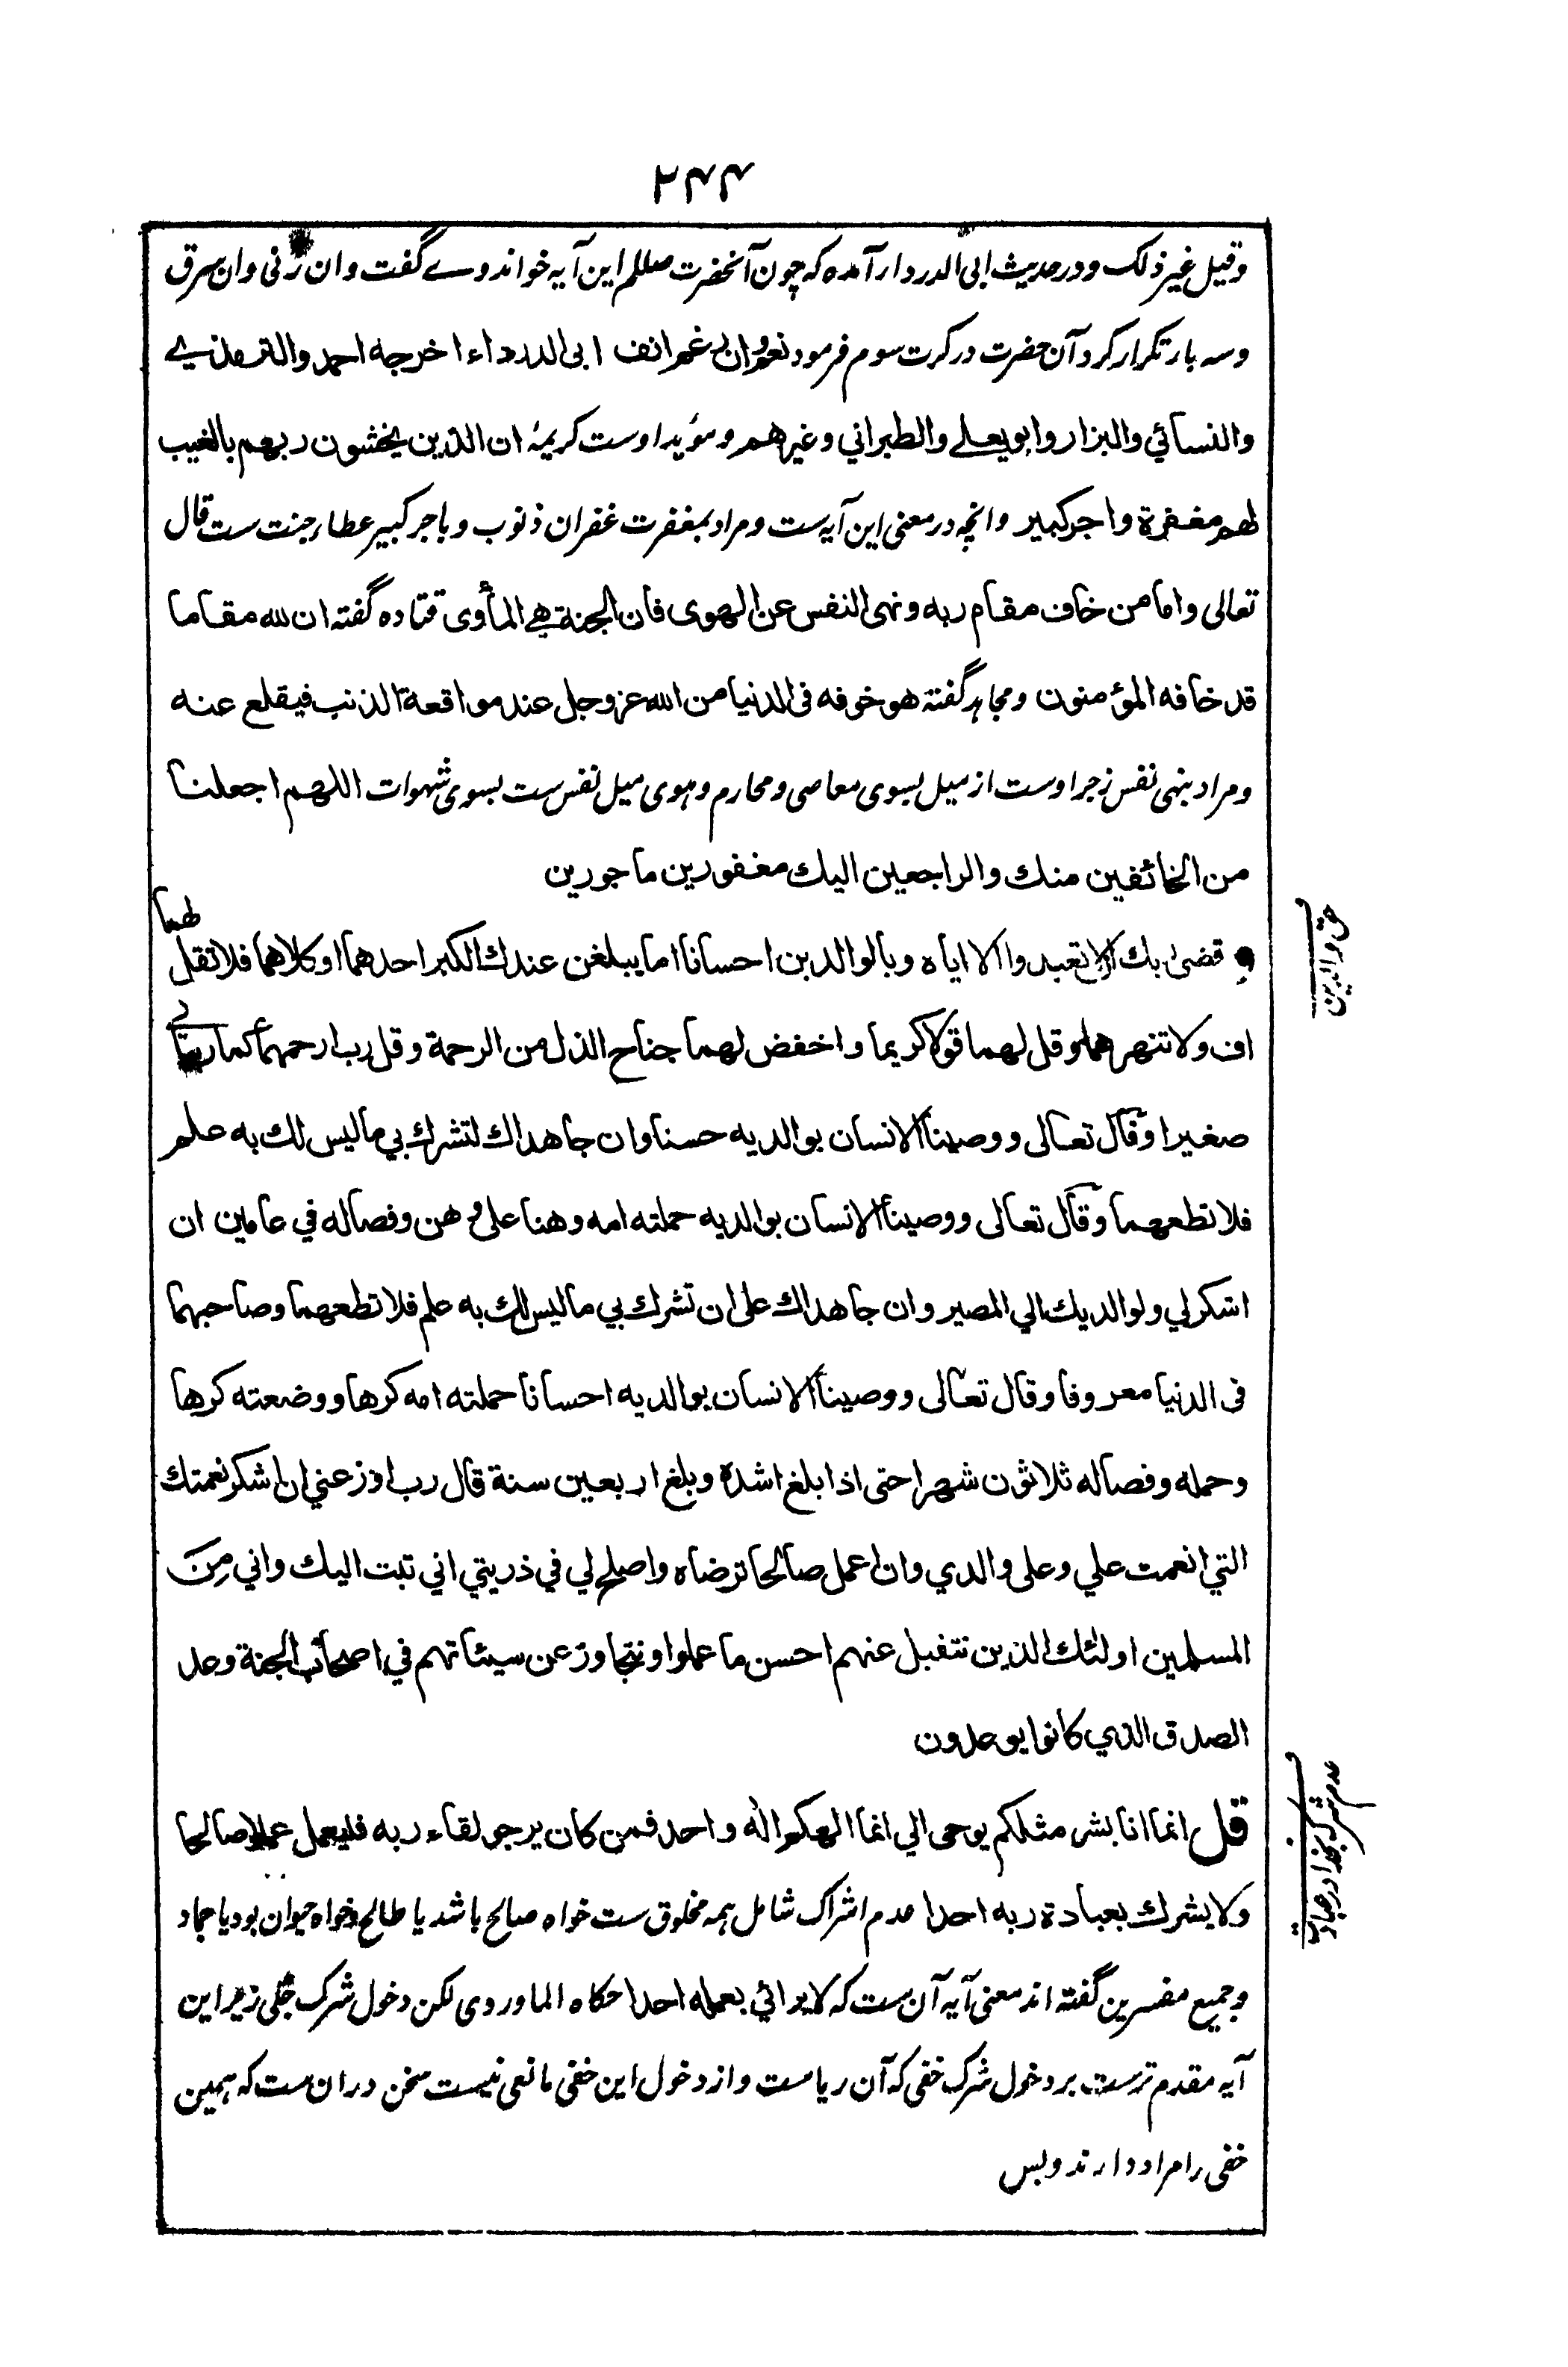 ۲۴۴
وقیل غیر ذلک ودر حدیث ابی الدردار آمده که چون آنحضرت صللم این آیه خواند وے گفت وان زنی وان سرق
وسه بار تکرار کرد آن حضرت در کرت سوم فرمود نعم وان رغم انف ابی الدرداء اخرجه احمد والترمذے
والنسائي والبزار وابویعلے والطبراني وغیرهم ومؤید اوست کریمۂ ان الذین یخشون ربهم بالغیب
لهم مغفرة واجر کبیر وانچه در معنی این آیه ست ومراد بمغفرت غفران ذنوب وباجر کبیر عطاء جنت ست قال
تعالی واما من خاف مقام ربه ونهی النفس عن الهوی فان الجنة هے المأوی قتاده گفته ان لله مقاما
قد خافه المؤمنون ومجاهد گفته هو خوفه فی الدنیا من الله عزوجل عند مواقعة الذنب فیقلع عنه
ومراد بنهی نفس زجر اوست از میل بسوی معاصی ومحارم وهوی میل نفس ست بسوی شهوات اللهم اجعلنا
من الخائفین منك والراجعین الیك مغفورین ماجورین
حق والدین
و قضیٰ ربك ان لا تعبدوا الا ایاه وبالوالدین احسانا اما یبلغن عندك الکبر احدهما او کلاهما فلا تقل لهما
اف ولا تنهرهما وقل لهما قولا کریما واخفض لهما جناح الذل من الرحمة وقل رب ارحمهما کما ربیانے
صغیرا وقال تعالی ووصینا الانسان بوالدیه حسنا وان جاهداك لتشرك بي ما لیس لك به علم
فلا تطعهما وقال تعالی ووصینا الانسان بوالدیه حملته امه وهنا علی وهن وفصاله في عامین ان
اشکر لي ولوالدیك الي المصیر وان جاهداك علی ان تشرك بي ما لیس لك به علم فلا تطعهما وصاحبهما
فی الدنیا معروفا وقال تعالی ووصینا الانسان بوالدیه احسانا حملته امه کرها ووضعته کرها
وحمله وفصاله ثلاثون شهرا حتی اذا بلغ اشده وبلغ اربعین سنة قال رب اوزعني ان اشکر نعمتك
التي انعمت علي وعلی والدي وان اعمل صالحا ترضاه واصلح لي في ذریتي اني تبت الیك واني مِنَ
المسلمین اولئك الذین نتقبل عنهم احسن ما عملوا ونتجاوز عن سیئاتهم في اصحاب الجنة وعد
الصدق الذي کانوا یوعدون
عدم شرک بخدا در عبادت
قل انما انا بشر مثلکم یوحی الي انما الهکم اله واحد فمن کان یرجو لقاء ربه فلیعمل عملا صالحا
ولا یشرك بعبادة ربه احدا عدم اشراک شامل همه مخلوق ست خواه صالح باشد یا طالح وخواه حیوان بود یا جماد
وجمیع مفسرین گفته اند معنی آیه آن ست که لا یرائي بعمله احدا حکاه الماوردی لکن دخول شرک جلی زیر این
آیه مقدم ترست بر دخول شرک خفی که آن ریاست واز دخول این خفی مانعی نیست سخن دران ست که همین
خفی را مراد دارند وبس